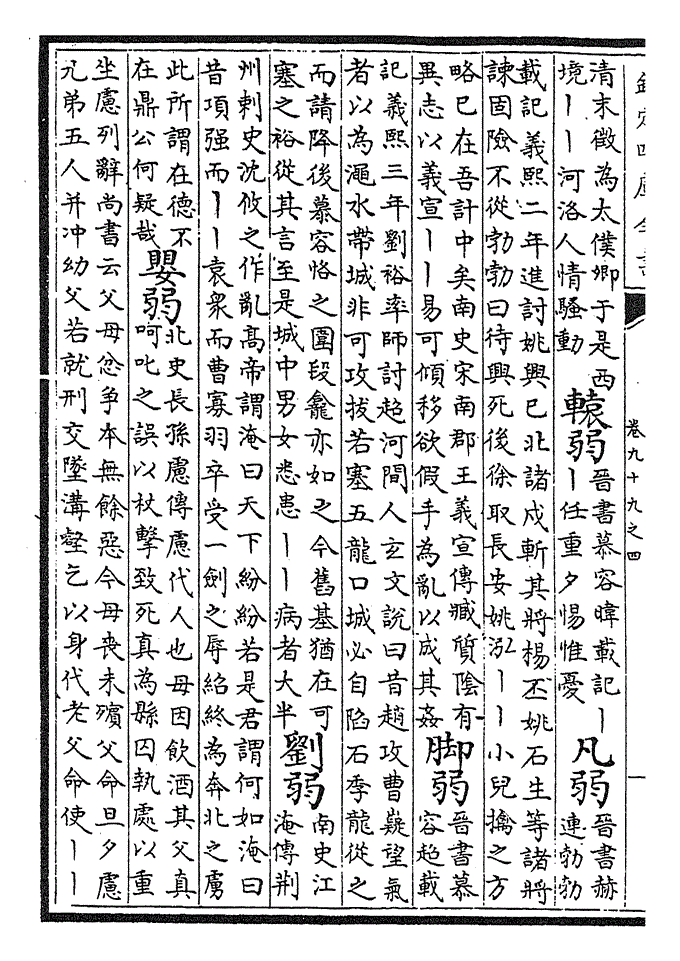 欽定四庫全書
卷九十九之四
一
清末徵為太僕卿于是西
境丨丨河洛人情騷動
轅弱
晉書慕容暐載記丨
丨任重夕惕惟憂
凡弱
晉書赫
連勃勃
載記義熙二年進討姚興已北諸戍斬其將楊丕姚石生等諸將
諫固險不從勃勃曰待興死後徐取長安姚泓丨丨小兒擒之方
略已在吾計中矣南史宋南郡王義宣傳臧質陰有
異志以義宣丨丨易可傾移欲假手為亂以成其姦
脚弱
晉書慕
容超載
記義熙三年劉裕率師討超河間人玄文說曰昔趙攻曹嶷望氣
者以為澠水帶城非可攻拔若塞五龍口城必自陷石季龍從之
而請降後慕容恪之圍段龕亦如之今舊基猶在可
塞之裕從其言至是城中男女悉患丨丨病者大半
劉弱
南史江
淹傳荆
州刺史沈攸之作亂高帝謂淹曰天下紛紛若是君謂何如淹曰
昔項强而丨丨袁衆而曹寡羽卒受一劍之辱紹終為奔北之虜
此所謂在德不
在鼎公何疑哉
嬰弱
北史長孫慮傳慮代人也母因飲酒其父真
呵叱之誤以杖擊致死真為縣囚執處以重
坐慮列辭尚書云父母忿争本無餘惡今母喪未殯父命旦夕慮
兄弟五人并冲幼父若就刑交墜溝壑乞以身代老父命使丨丨